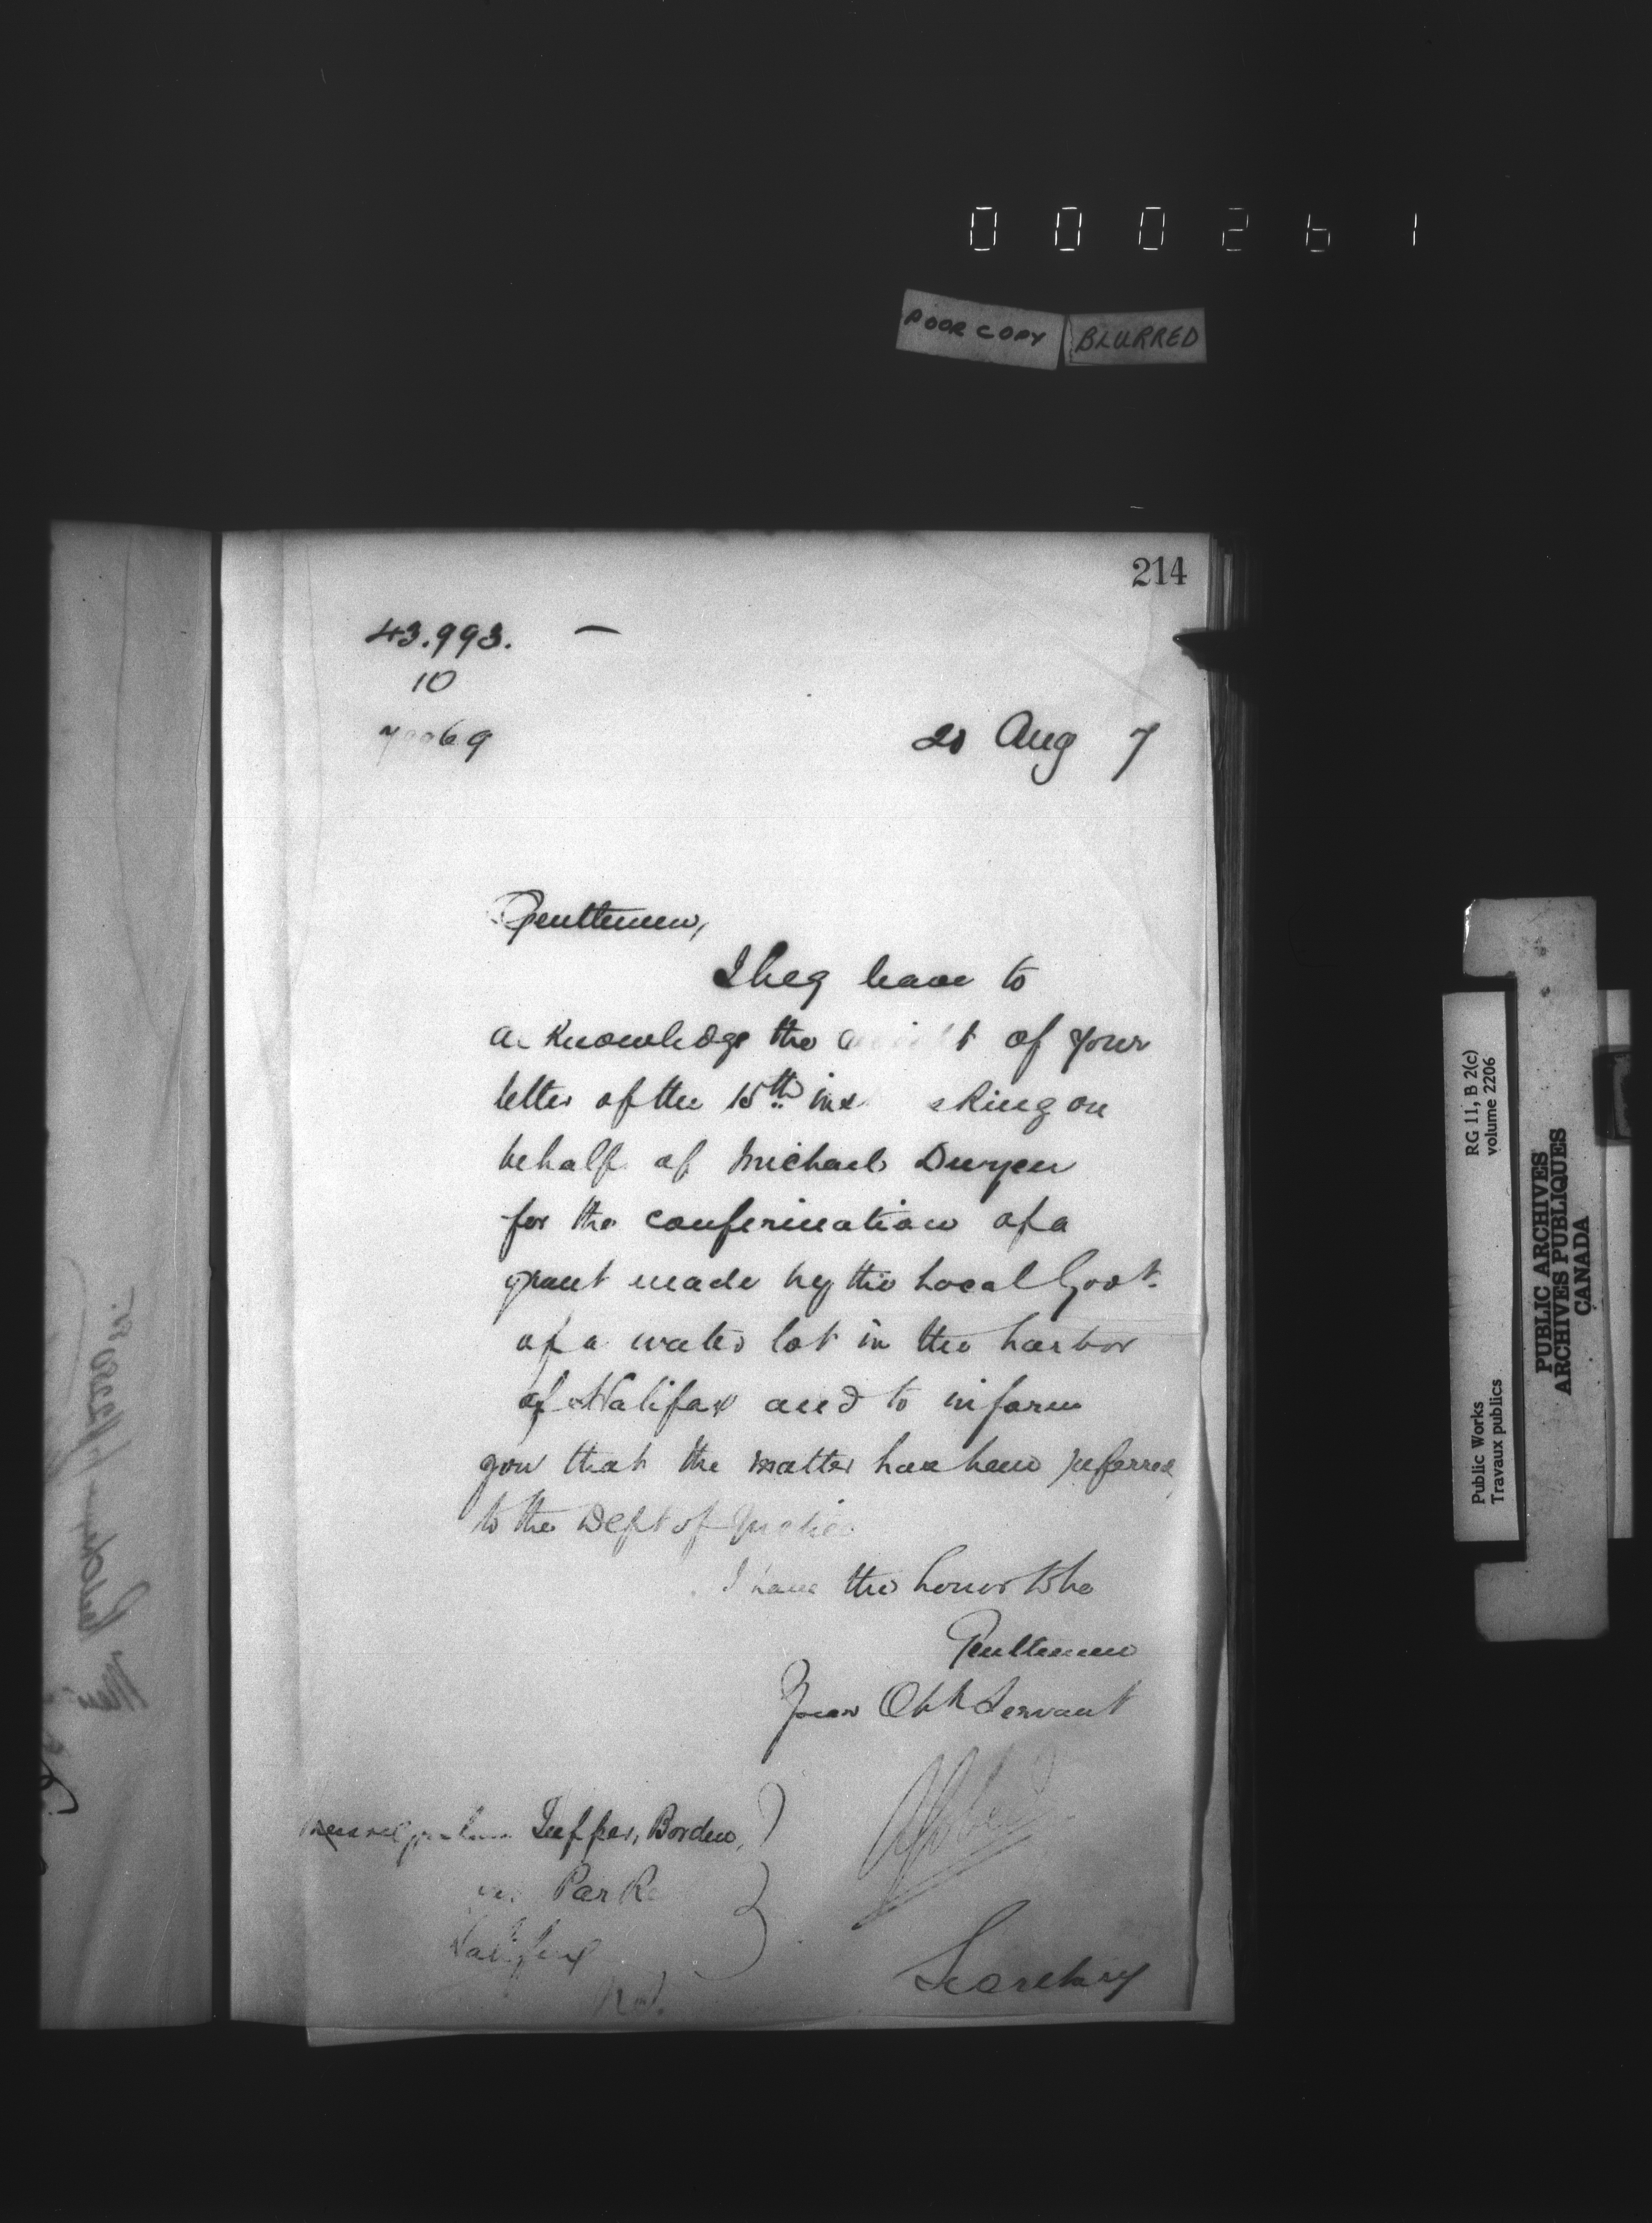 000261
POOR COPY BLURRED
214
43.993.
10
20 Aug 7
Gentlemen,
I beg leave to
acknowledge the of your
letter of the 15th ins asking on
behalf of Michael Dwyer
for the confirmation of a
grant made by the Local Govt.
of a water lot in the harbor
of Halifax and to inform
you that the matter has been referred
to the Dept of Justice
I have the honor to be
Gentlemen
Your Obt Servant
Tupper, Borden,
Parke
Halifax
N.S.
Secretary
Public Works
Travaux publics
RG 11, B 2(c)
volume 2206
PUBLIC ARCHIVES
ARCHIVES PUBLIQUES
CANADA